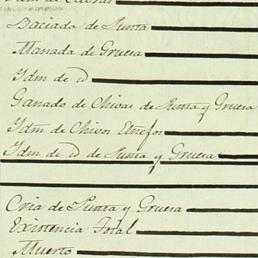 Baciada de Punta
Manada de Gruesa
Ydm de D
Ganado de Chivas de Punta y Gruesa
Ydm de Chivos
Ydm de D de Punta y Gruesa
Cria de Punta y Gruesa
Existencia Total
Muerto